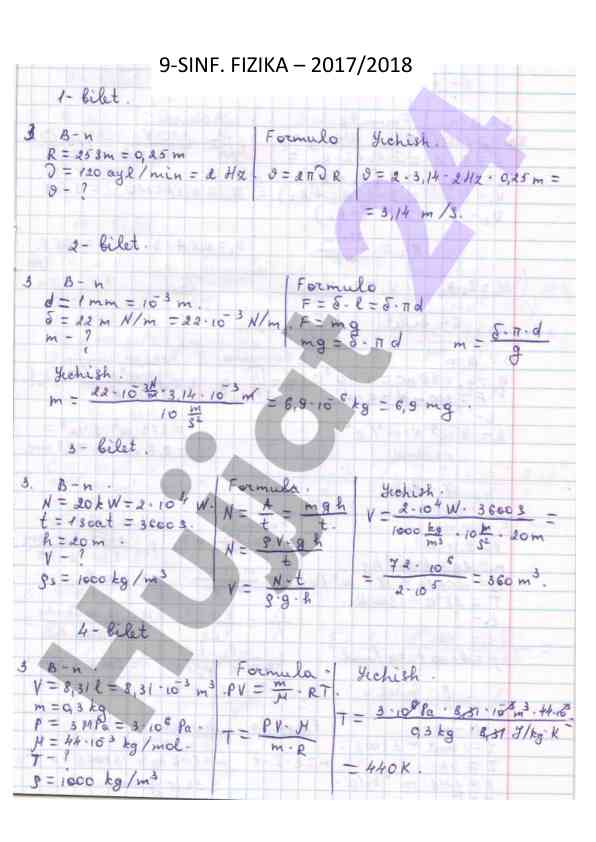 9-SINF. FIZIKA – 2017/2018
1- bilet.
3 B-n
R = 25 sm = 0,25 m
ϑ = 120 ayl/min = 2 Hz.
ϑ - ?
Formula
ϑ = 2πϑ R
Yechish.
ϑ = 2 · 3,14 · 2Hz · 0,25 m =
= 3,14 m/s.
2- bilet.
3 B-n
d = 1 mm = 10⁻³ m.
б = 22 m N/m = 22·10⁻³ N/m.
m - ?
Formula
F = б · l = б · πd
F = mg
mg = б · π d
m = б·π·d / g
Yechish.
m = 22·10⁻³ N/m · 3,14 · 10⁻³ m / 10 m/s² = 6,9·10⁻⁶ kg = 6,9 mg.
3- bilet.
3. B-n.
N = 20kW = 2·10⁴ W.
t = 1 soat = 3600 s.
h = 20m.
V - ?
ρs = 1000 kg/m³
Formula.
N = A/t = mgh/t.
N = ρV·gh/t
V = N·t/ρ·g·h
Yechish.
V = 2·10⁴ W · 3600 s / 1000 kg/m³ · 10 m/s² · 20m =
= 72 · 10⁶ / 2·10⁵ = 360 m³.
4- bilet
3 B-n.
V = 8,31 l = 8,31·10⁻³ m³
m = 0,3 kg
P = 3 MPa = 3·10⁶ Pa.
M = 44·10⁻³ kg/mol.
T - ?
ρ = 1000 kg/m³
Formula.
PV = m/M · RT.
T = PV·M / m·R
Yechish.
T = 3·10⁶ Pa · 8,31 · 10⁻³ m³ · 44·10⁻³ / 0,3 kg · 8,31 J/kg·K =
= 440K.
Hujjat 24